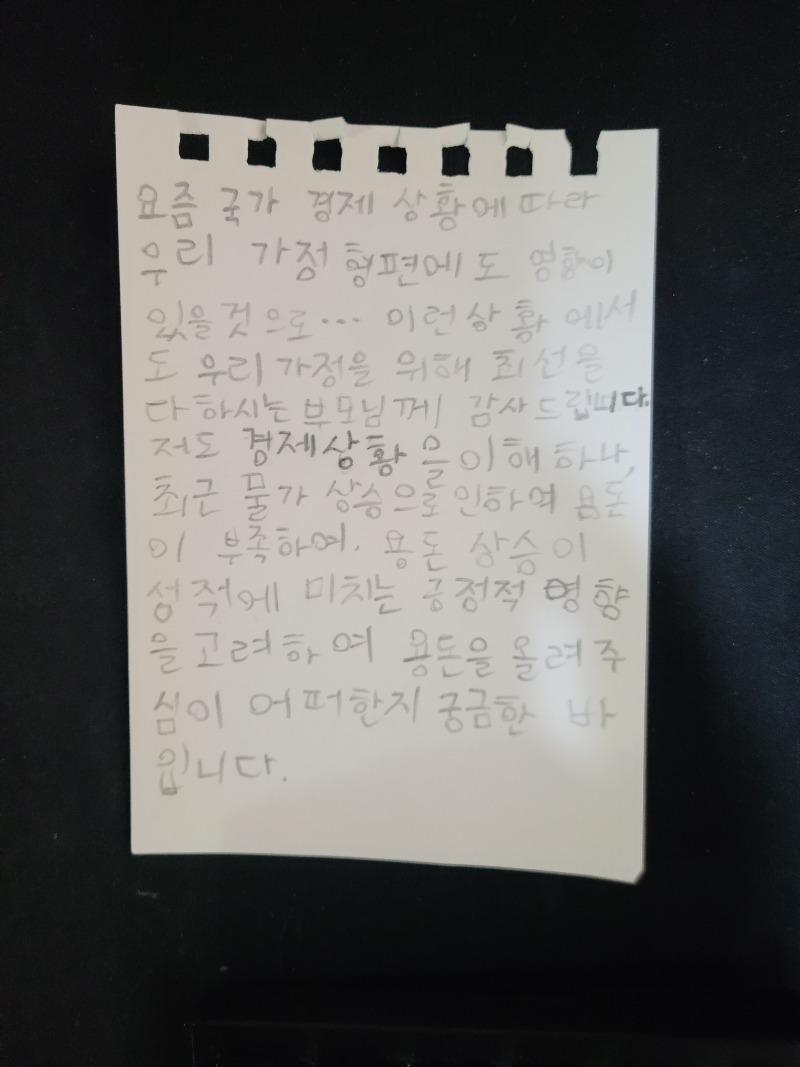 요즘 국가 경제 상황에 따라
우리 가정 형편에도 영향이
있을것으로... 이런상황에서
도 우리가정을 위해 최선을
다하시는 부모님께 감사드립띠다.
저도 경제상황을 이해하나,
최근 물가 상승으로인하여 용돈
이 부족하여. 용돈 상승이
성적에 미치는 긍정적 영향
을 고려하여 용돈을 올려주
심이 어떠한지 궁금한 바
입니다.